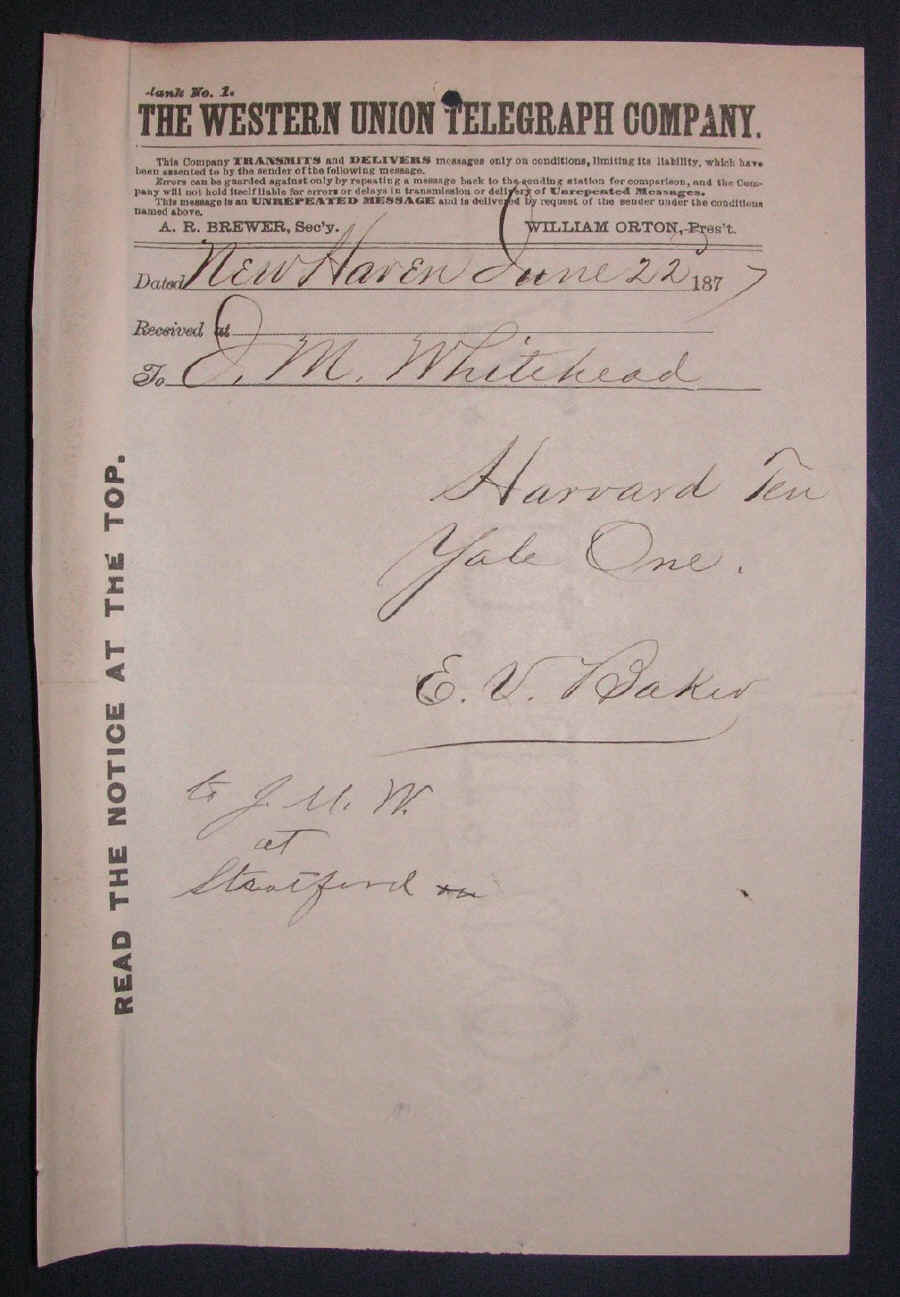 lank No. 1.
THE WESTERN UNION TELEGRAPH COMPANY.
This Company TRANSMITS and DELIVERS messages only on conditions, limiting its liability, which have
been assented to by the sender of the following message.
Errors can be guarded against only by repeating a message back to the sending station for comparison, and the Com-
pany will not hold itself liable for errors or delays in transmission or delivery of Unrepeated Messages.
This message is an UNREPEATED MESSAGE and is delivered by request of the sender under the conditions
named above.
A. R. BREWER, Sec'y. WILLIAM ORTON, Pres't.
Dated New Haven June 22 1877
Received at
To J. M. Whitehead
Harvard Ten
Yale One.
E. V. Baker
to J. M. W.
at
Stratford
READ THE NOTICE AT THE TOP.